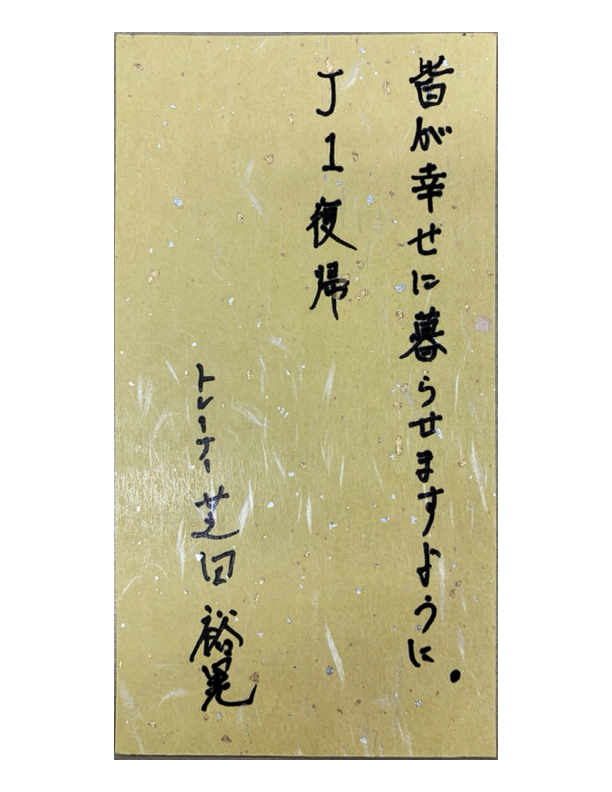 皆が幸せに暮らせますように.
J1復帰
トレーナー 芝田 裕晃